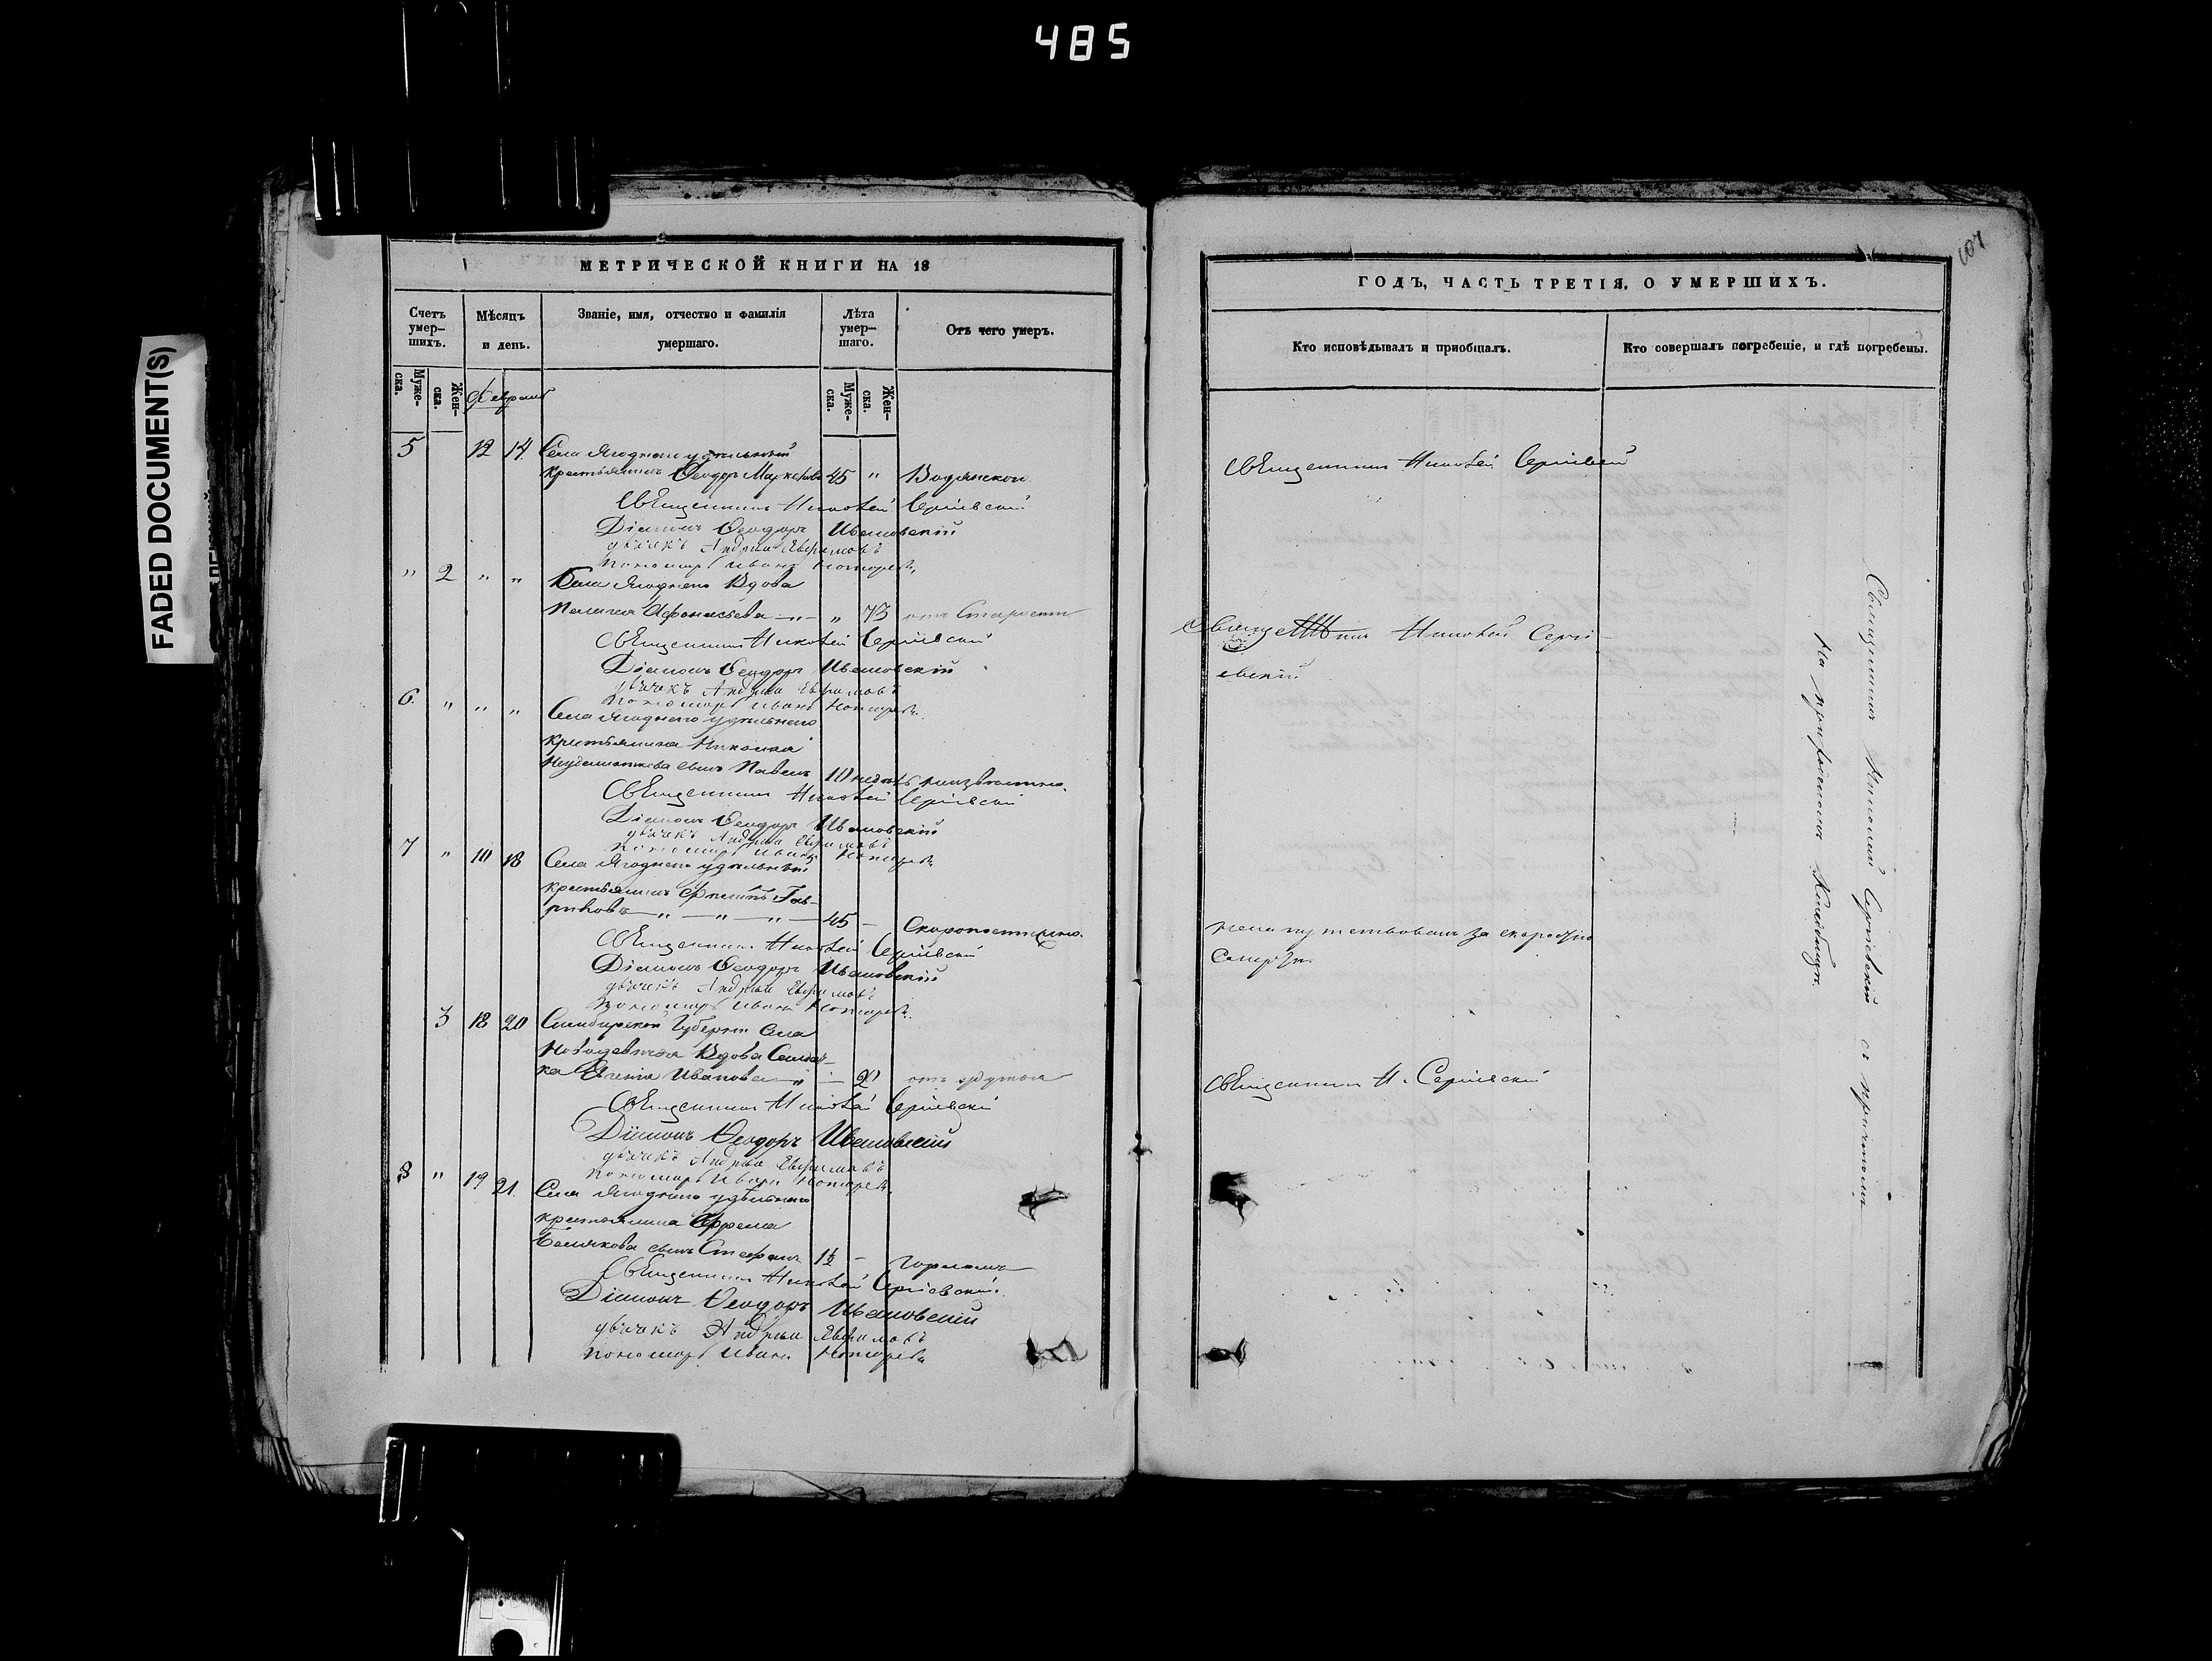 485
FADED DOCUMENT(S)
МЕТРИЧЕСКОЙ КНИГИ НА 18
Счетъ умер-шихъ.
Мѣсяцъ и день.
Званіе, имя, отчество и фамилія умершаго.
Лѣта умер-шаго.
Отъ чего умеръ.
Муже-ска.
Жен-ска.
Февраль
Муже-ска.
Жен-ска.
5 12 14 Села Ягоднаго удѣльный
крестьянинъ Ѳеодоръ 45 " Водянкой
Священникъ Николай Сергіевскій
Діаконъ Ѳеодоръ Ивановскій
дьячекъ Андрей Евфимовъ
пономарь Иванъ
" 2 " " Села Ягоднаго Вдова
Пелагея Афонасьева " 73 отъ Старости
Священникъ Николай Сергіевскій
Діаконъ Ѳеодоръ Ивановскій
дьячекъ Андрей Евфимовъ
пономарь Иванъ
6. " " " Села Ягоднаго удѣльнаго
крестьянина Николая
сынъ Павелъ 10 недѣль
Священникъ Николай Сергіевскій
Діаконъ Ѳеодоръ Ивановскій
дьячекъ Андрей Евфимовъ
пономарь Иванъ
7 " 18 Села Ягоднаго удѣльный
крестьянинъ Гав-
риковъ " " " 45 — Скоропостижно.
Священникъ Николай Сергіевскій
Діаконъ Ѳеодоръ Ивановскій
дьячекъ Андрей Евфимовъ
пономарь Иванъ
3 18 20 Симбирской Губерніи Села
Новодевичья Вдова
Иванова отъ
Священникъ Николай Сергіевскій
Діаконъ Ѳеодоръ Ивановскій
дьячекъ Андрей Евфимовъ
пономарь Иванъ
8 " 19 21. Села Ягоднаго удѣльнаго
крестьянина Ефрема
сынъ Стефанъ 1½ — Горломъ
Священникъ Николай Сергіевскій.
Діаконъ Ѳеодоръ Ивановскій
дьячекъ Андрей Евфимовъ
пономарь Иванъ
107
ГОДЪ, ЧАСТЬ ТРЕТІЯ, О УМЕРШИХЪ.
Кто исповѣдывалъ и приобщалъ.
Кто совершалъ погребеніе, и гдѣ погребены.
Священникъ Николай Сергіевскій
Николай Сергі-
евскій
за скоростію
Священникъ Н. Сергіевскій
Священникъ Николай Сергіевскій съ причтомъ
На приходскомъ Кладбищѣ.